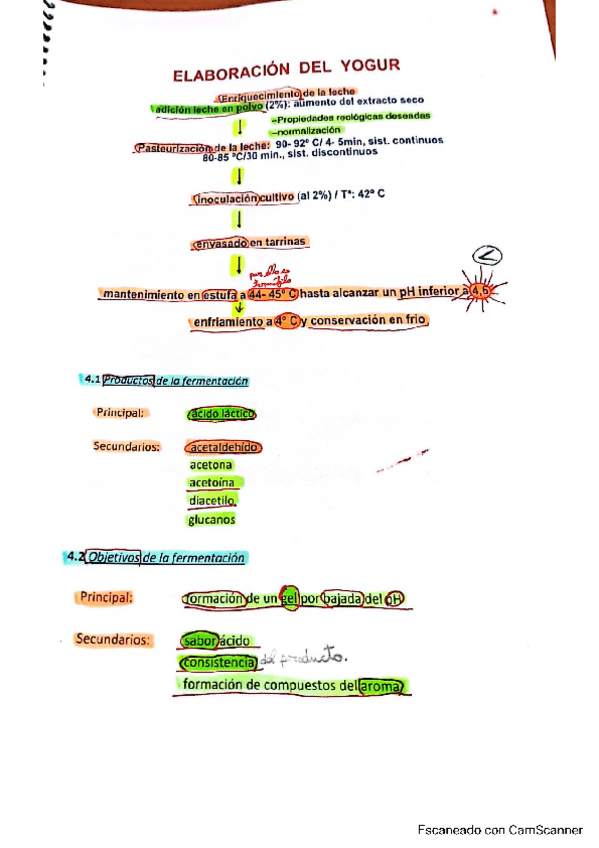 ELABORACIÓN DEL YOGUR
Enriquecimiento de la leche
adición leche en polvo (2%): aumento del extracto seco
–Propiedades reológicas deseadas
–normalización
Pasteurización de la leche: 90- 92º C/ 4- 5min, sist. continuos
80-85 ºC/30 min., sist. discontinuos
inoculación cultivo (al 2%) / Tª: 42º C
envasado en tarrinas
por ello es
termófilo
<
mantenimiento en estufa a 44- 45º C hasta alcanzar un pH inferior a 4,6
enfriamiento a 4º C y conservación en frio
4.1 Productos de la fermentación
Principal: ácido láctico
Secundarios: acetaldehído
acetona
acetoína
diacetilo
glucanos
4.2 Objetivos de la fermentación
Principal: formación de un gel por bajada del pH
Secundarios: sabor ácido
consistencia del producto.
formación de compuestos del aroma
Escaneado con CamScanner